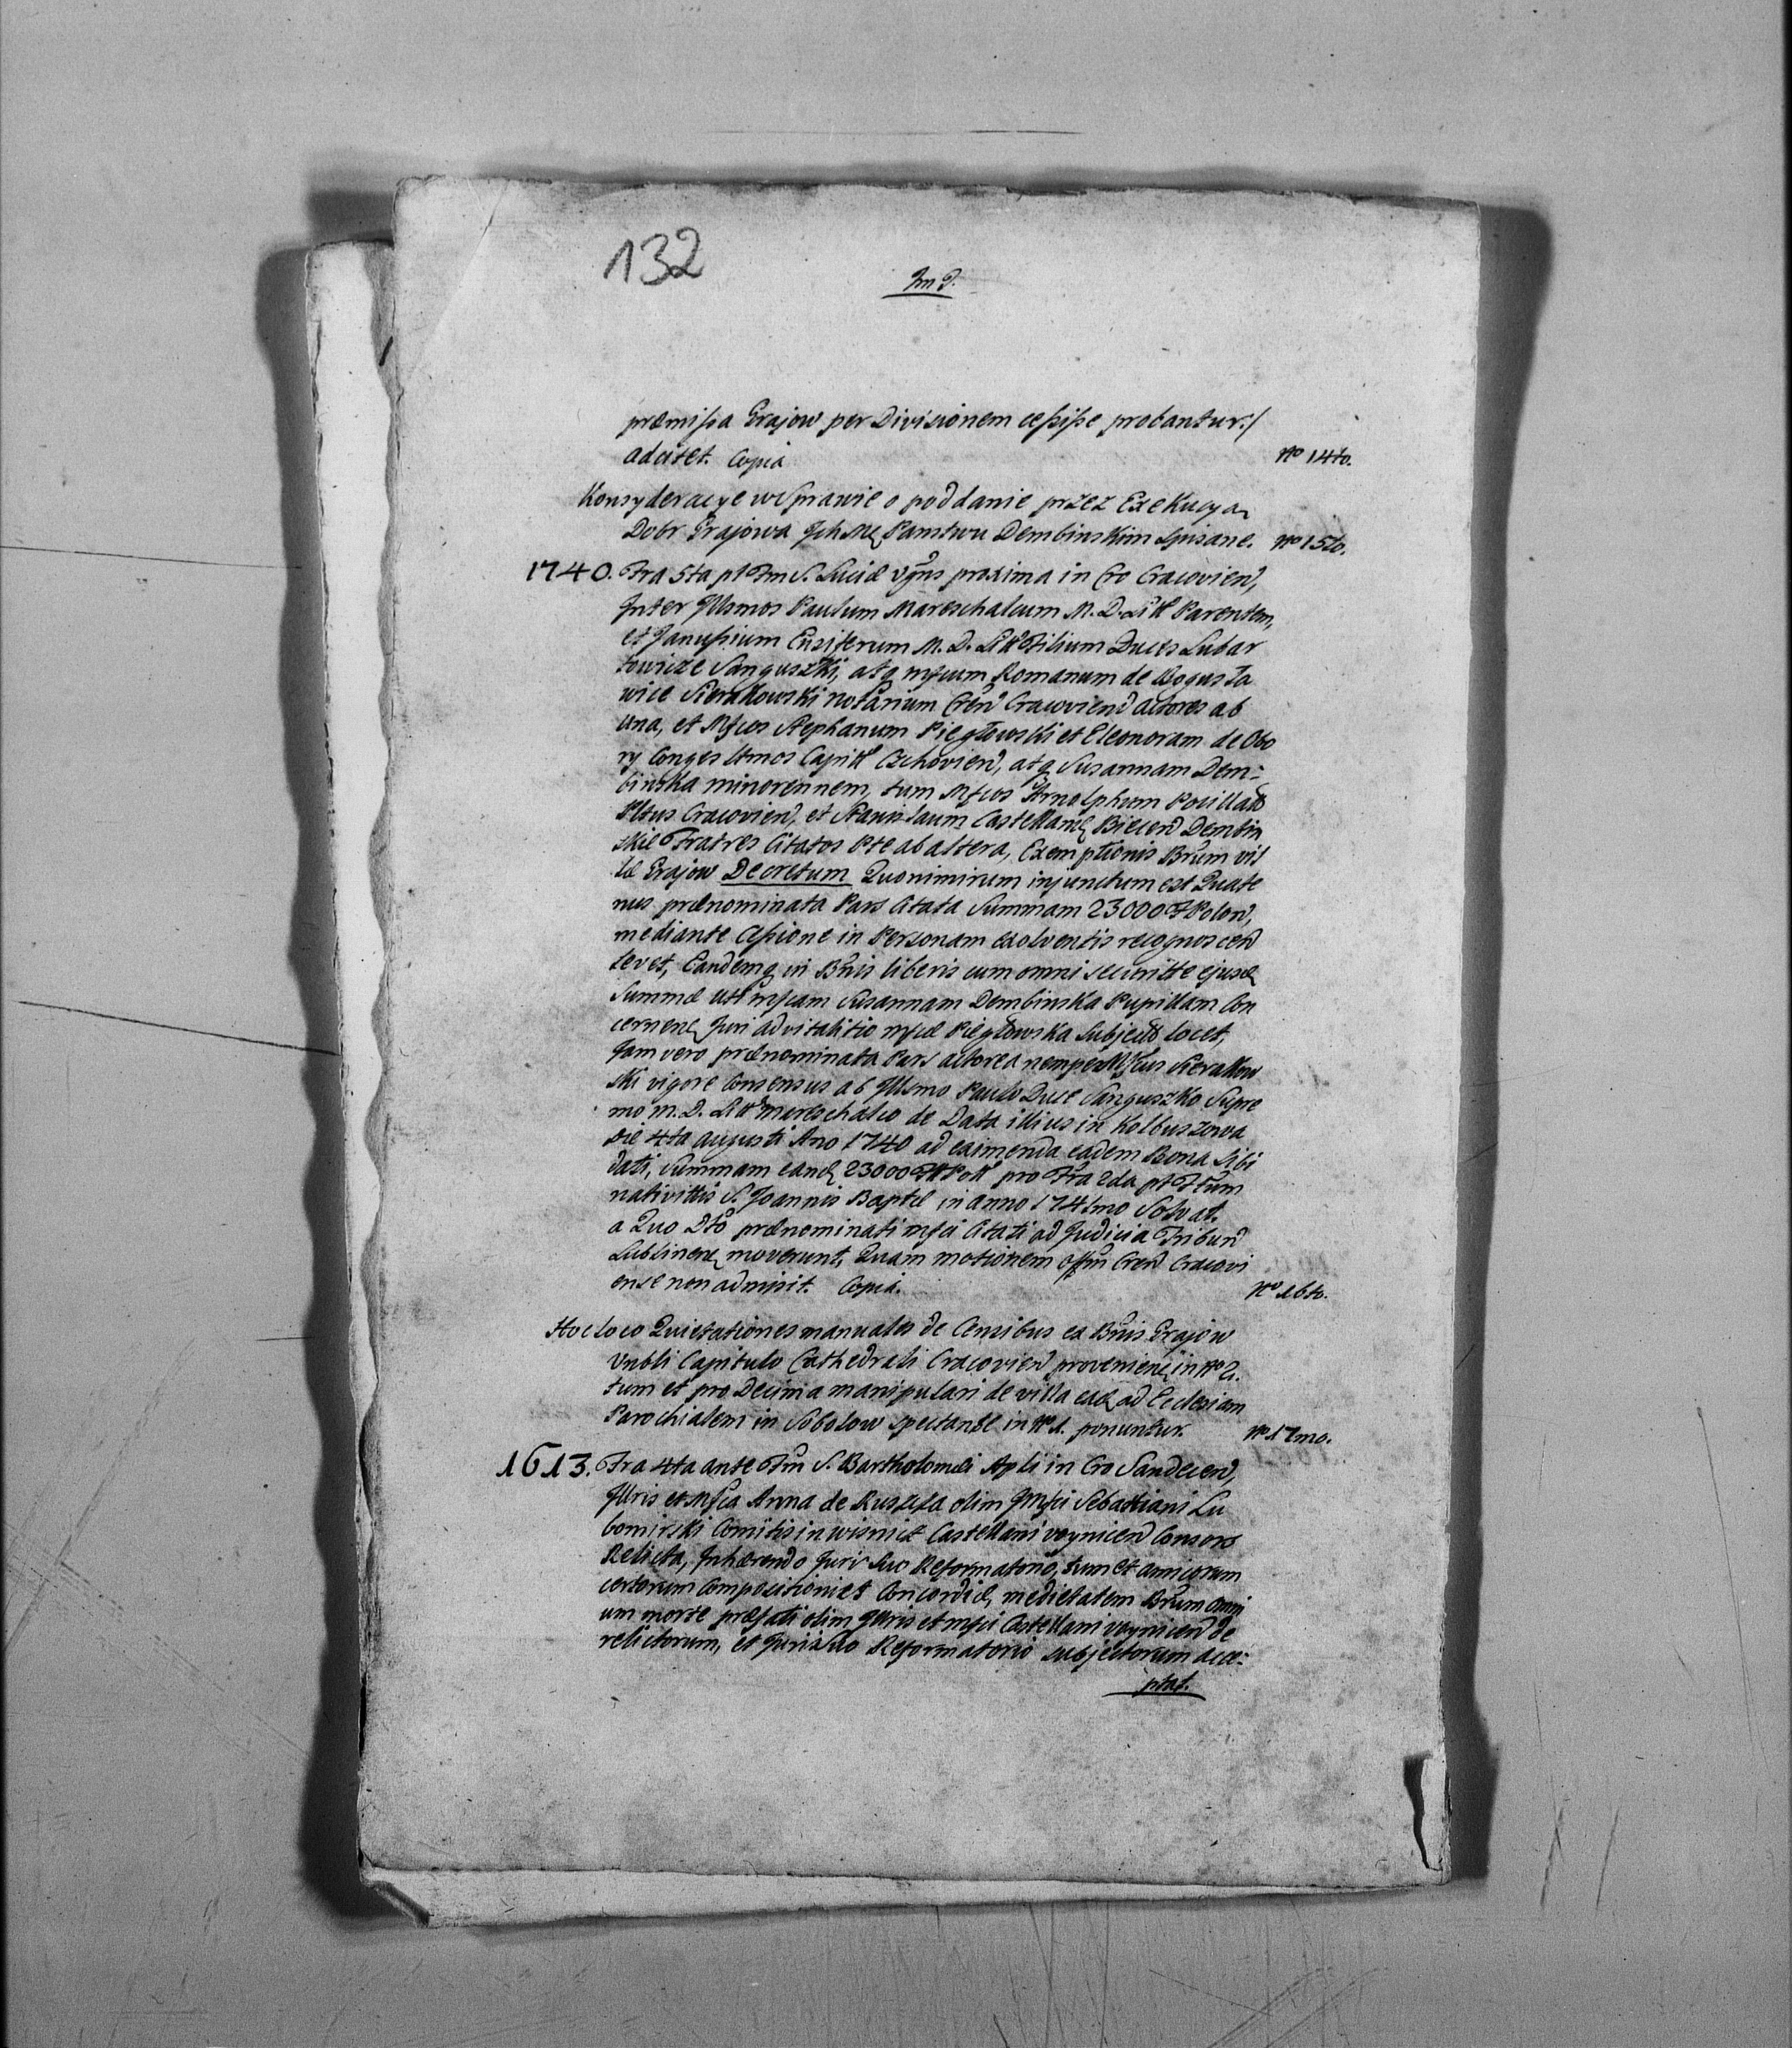 132
Im P.
præmissa Grajow per Divisionem cessisse probantur:/
adcitet. Copia No 14to.
Konsyderacye w Sprawie o poddanie przez Exekucyą
Dobr Grajowa Ich Mę Panstwu Dembinskim Spisane. No 15to.
1740. Fra 5ta pt Fm S. Luciæ Vgns proxima in Cro Cracovien,
Inter Illsmos Paulum Mareschalcum M. D. Litt Parentem,
et Janussium Ensiferum M. D. Litt Filium Duces Lubar
towicze Sanguszki, atq Mfcum Romanum de Bogusła
wice Sierakowski Notarium Cren Cracovien Actores ab
una, et Mfcos Stephanum Piegłowski et Eleonoram de Obo
ry Conges ltmos Capitt Ochovien, atq Susannam Dem:
binska minorennem, tum Mfcos Arnolphum Pocillatt
Pltus Cracovien, et Stanislaum Castellanę Biecen Dembin
skie Fratres Citatos Pte ab altera, Exemptionis Brum vil
læ Grajow Decretum Quonimirum injunctum est Quate
nus prænominata Pars Citata Summam 23000 F Polon,
mediante Cessione in Personam exolventis recognoscen
levet, Eandemq in Bnis liberis cum omni securitte ejusd
Summæ uti Mfcam Susannam Dembinska Pupillam Con
cernenę Juri advitalitio Mfcæ Piegłowska Subjectt locet,
Jam vero prænominata Pars actorea nempe Mfcus Sierakow
ski vigore Consensus ab Illsmo Paulo Duce Sanguszko Supre
mo M. D. Litt Mareschalco de Data illius in Kolbuszowa
Die 4ta Augusti Ano 1740 ad eximenda eadem Bona Sibi
dati, Summam eandę 23000 Ft Polt pro Fra 2da pt Ftum
nativittis S. Joannis Baptæ in Anno 1741mo Solvat.
a Quo Dto prænominati Mfci Citati ad Judicia Tribun
Lublinenę moverunt, Quam motionem Offm Cren Cracovi
ense non admisit. Copia. No 16to.
Hoc loco Quietationes manuales de Censibus ex Bnis Grajow
Vnbli Capitulo Cathedrali Cracovien provenienę in No 21.
tum et pro Decima manipulari de villa eadę ad Ecclesiam
Parochialem in Sobolow spectante in No 1. ponuntur. No 17mo.
1613. Fra 4ta ante Ftm S. Bartholomæi Apli in Cro Sandecen,
Illris et Mfca Anna de Ruszcza olim Jmfci Sebastiani Lu
bomirski Comitis in Wisnicz Castellani Voynicen Consors
Relicta, Inhærendo Juri Suo Reformatorio, tum et amicorum
certorum Compositioni et Concordiæ, medietatem Brum omni
um morte præfati olim Illris et Mfci Castellani Voynicen de
relictorum, et Juri Suo Reformatorio subjectorum acce:
ptat.